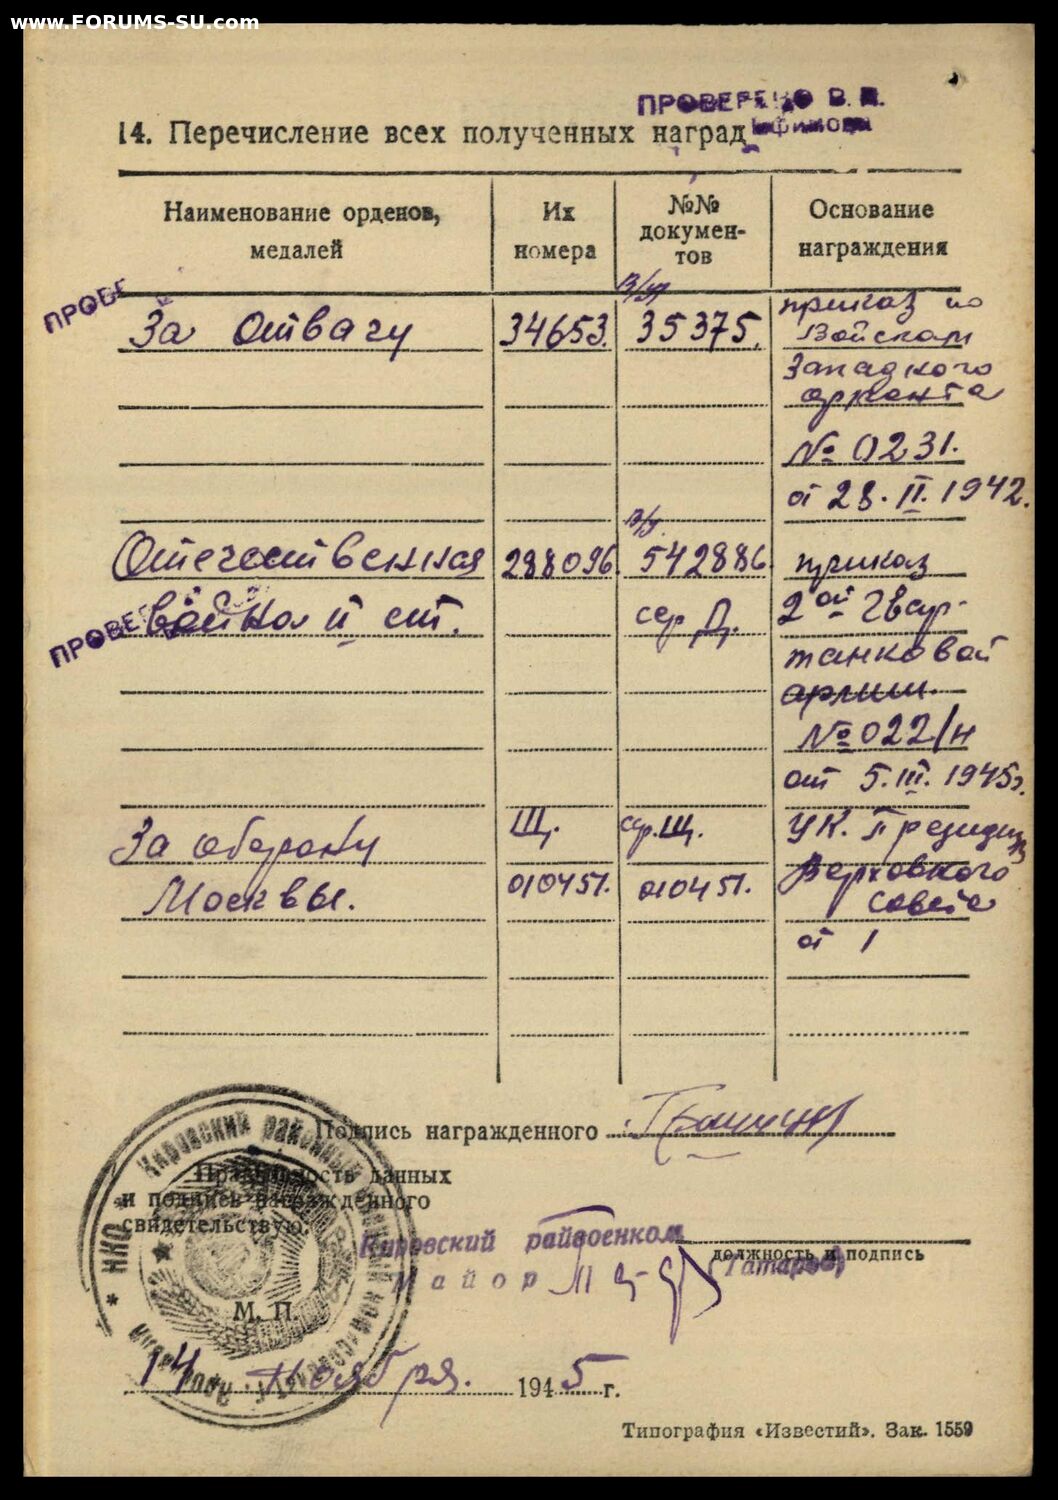 www.FORUMS-SU.com
ПРОВЕРЕНО В. П.
14. Перечисление всех полученных наград
Наименование орденов, медалей
Их номера
№№ документов
Основание награждения
ПРОВЕ
В/уд
За Отвагу 34653. 35375. приказ по
Войскам
Западного
фронта
№ 0231.
от 28. II. 1942.
Отечественная 288096. 542886. приказ
ПРОВЕ
война II ст. сер Д. 2ой Гвар-
танковой
армии.
№ 022/н
от 5. III. 1945г.
За оборону Щ. сер. Щ. УК. Президиу
Москвы. 010451. 010451. Верховного
Совета
от 1
Подпись награжденного
Правильность данных
и подписи награжденного
свидетельствую:
Кировский райвоенком
должность и подпись
Майор (Татаров)
М. П.
Кировский районный
НКО
14 ноября. 1945 г.
Типография «Известий». Зак. 1559